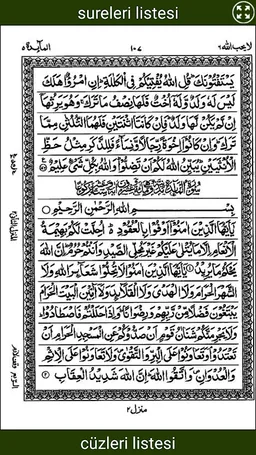 sureleri listesi
لا يحب الله ٦
١٠٧
المآئدة ٥
يَسْتَفْتُوْنَكَ ؕ قُلِ اللّٰهُ يُفْتِيْكُمْ فِی الْكَلٰلَةِ ؕ اِنِ امْرُؤٌا هَلَكَ
لَيْسَ لَهٗ وَلَدٌ وَّلَهٗۤ اُخْتٌ فَلَهَا نِصْفُ مَا تَرَكَ ۚ وَهُوَ يَرِثُهَاۤ
اِنْ لَّمْ يَكُنْ لَّهَا وَلَدٌ ؕ فَاِنْ كَانَتَا اثْنَتَيْنِ فَلَهُمَا الثُّلُثٰنِ مِمَّا
تَرَكَ ؕ وَاِنْ كَانُوْۤا اِخْوَةً رِّجَالًا وَّنِسَآءً فَلِلذَّكَرِ مِثْلُ حَظِّ
الْاُنْثَيَيْنِ ؕ يُبَيِّنُ اللّٰهُ لَكُمْ اَنْ تَضِلُّوْا ؕ وَاللّٰهُ بِكُلِّ شَیْءٍ عَلِيْمٌ
بِسْمِ اللّٰهِ الرَّحْمٰنِ الرَّحِيْمِ
يٰۤاَيُّهَا الَّذِيْنَ اٰمَنُوْۤا اَوْفُوْا بِالْعُقُوْدِ ؕ اُحِلَّتْ لَكُمْ بَهِيْمَةُ
الْاَنْعَامِ اِلَّا مَا يُتْلٰى عَلَيْكُمْ غَيْرَ مُحِلِّی الصَّيْدِ وَاَنْتُمْ حُرُمٌ ؕ اِنَّ اللّٰهَ
يَحْكُمُ مَا يُرِيْدُ ۝ يٰۤاَيُّهَا الَّذِيْنَ اٰمَنُوْا لَا تُحِلُّوْا شَعَآئِرَ اللّٰهِ وَلَا
الشَّهْرَ الْحَرَامَ وَلَا الْهَدْیَ وَلَا الْقَلَآئِدَ وَلَاۤ آٰمِّيْنَ الْبَيْتَ الْحَرَامَ
يَبْتَغُوْنَ فَضْلًا مِّنْ رَّبِّهِمْ وَرِضْوَانًا ؕ وَاِذَا حَلَلْتُمْ فَاصْطَادُوْا ؕ
وَلَا يَجْرِمَنَّكُمْ شَنَاٰنُ قَوْمٍ اَنْ صَدُّوْكُمْ عَنِ الْمَسْجِدِ الْحَرَامِ اَنْ
تَعْتَدُوْا ۘ وَتَعَاوَنُوْا عَلَى الْبِرِّ وَالتَّقْوٰى ۪ وَلَا تَعَاوَنُوْا عَلَى الْاِثْمِ
وَالْعُدْوَانِ ۪ وَاتَّقُوا اللّٰهَ ؕ اِنَّ اللّٰهَ شَدِيْدُ الْعِقَابِ ۝
منزل ٢
cüzleri listesi